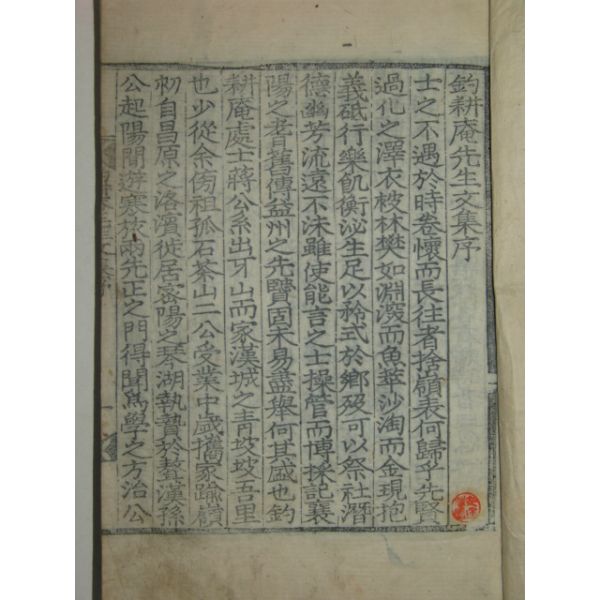 釣耕庵先生文集序
士之不遇於時卷懷而長往者捨嶺表何歸乎先賢
過化之澤衣被林樊如淵潑而魚萃沙淘而金現抱
義砥行樂飢衡泌生足以矜式於鄉歿可以祭社潛
德幽芳流遠不沬雖使能言之士操管而博採記襄
陽之耆舊傳益州之先賢固未易盡舉何其盛也釣
耕庵處士蔣公系出牙山而家漢城之靑坡坡吾里
也少從余傍祖孤石茶山二公受業中歲攜家踰嶺
初自昌原之洛濱徙居密陽之琴湖執贄於螯漢孫
公起陽間遊寒旅兩先正之門得聞爲學之方治公